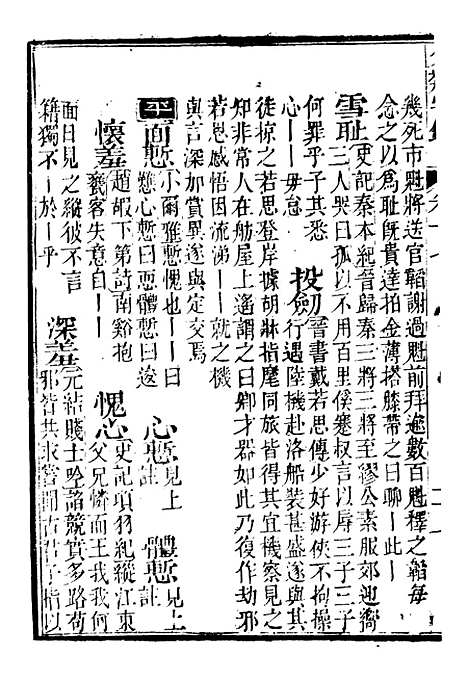 幾死市魁將送官韜謝過魁前拜逾數百魁釋之韜每
念之以爲耻旣貴達拍金薄搭膝帶之曰聊一此一
雪耻史記秦本紀晉歸秦三將三將至繆公素服郊迎嚮
三人哭曰孤以不用百里傒蹇叔言以辱三子三子
何罪乎子其悉
心一一毋怠
投劒晉書戴若思傳少好游俠不拘操
行遇陸機赴洛船裝甚盛遂與其
徒掠之若思登岸據胡牀指麾同旅皆得其宜機察見之
知非常人在舫屋上遙謂之曰卿才器如此乃復作劫邪
若思感悟因流涕一一就之機
與言深加賞異遂與定交焉
平
面慙小爾雅慙愧也一一曰
戁心慙曰恧體慙曰逡
心慙見上
註
體慙見上
註
懷羞趙嘏下第詩南谿抱
甕客失意自一一
愧心史記項羽紀縱江東
父兄憐而王我我何
面目見之縱彼不言
籍獨不一於一乎
深羞元結賤士吟諂競實多路苟
邪皆共求嘗聞古君子指以